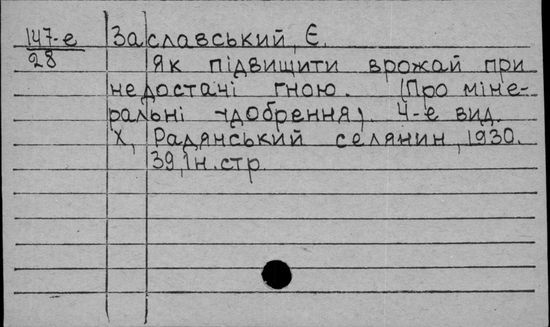 147-е Заславський, Є.
28
Як підвищити врожай при
недостачі гною. (Про міне-
ральні удобрення). 4-е вид.
Х, Радянський селянин, 1930.
39, 1н. стр.